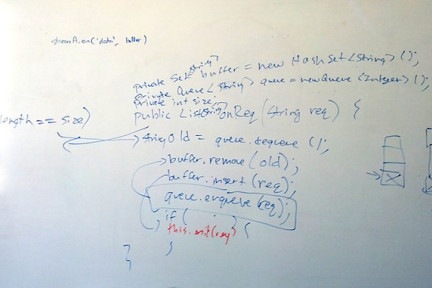 private Set<String> buffer = new HashSet<String>();
private Queue<String> queue = new Queue<Integer>();
private int size;
public List<String> onReq(String req) {
length == size)
String old = queue.dequeue();
buffer.remove(old);
buffer.insert(req);
queue.enqueue(req);
if ( . ) {
this.emit(req)
}
}